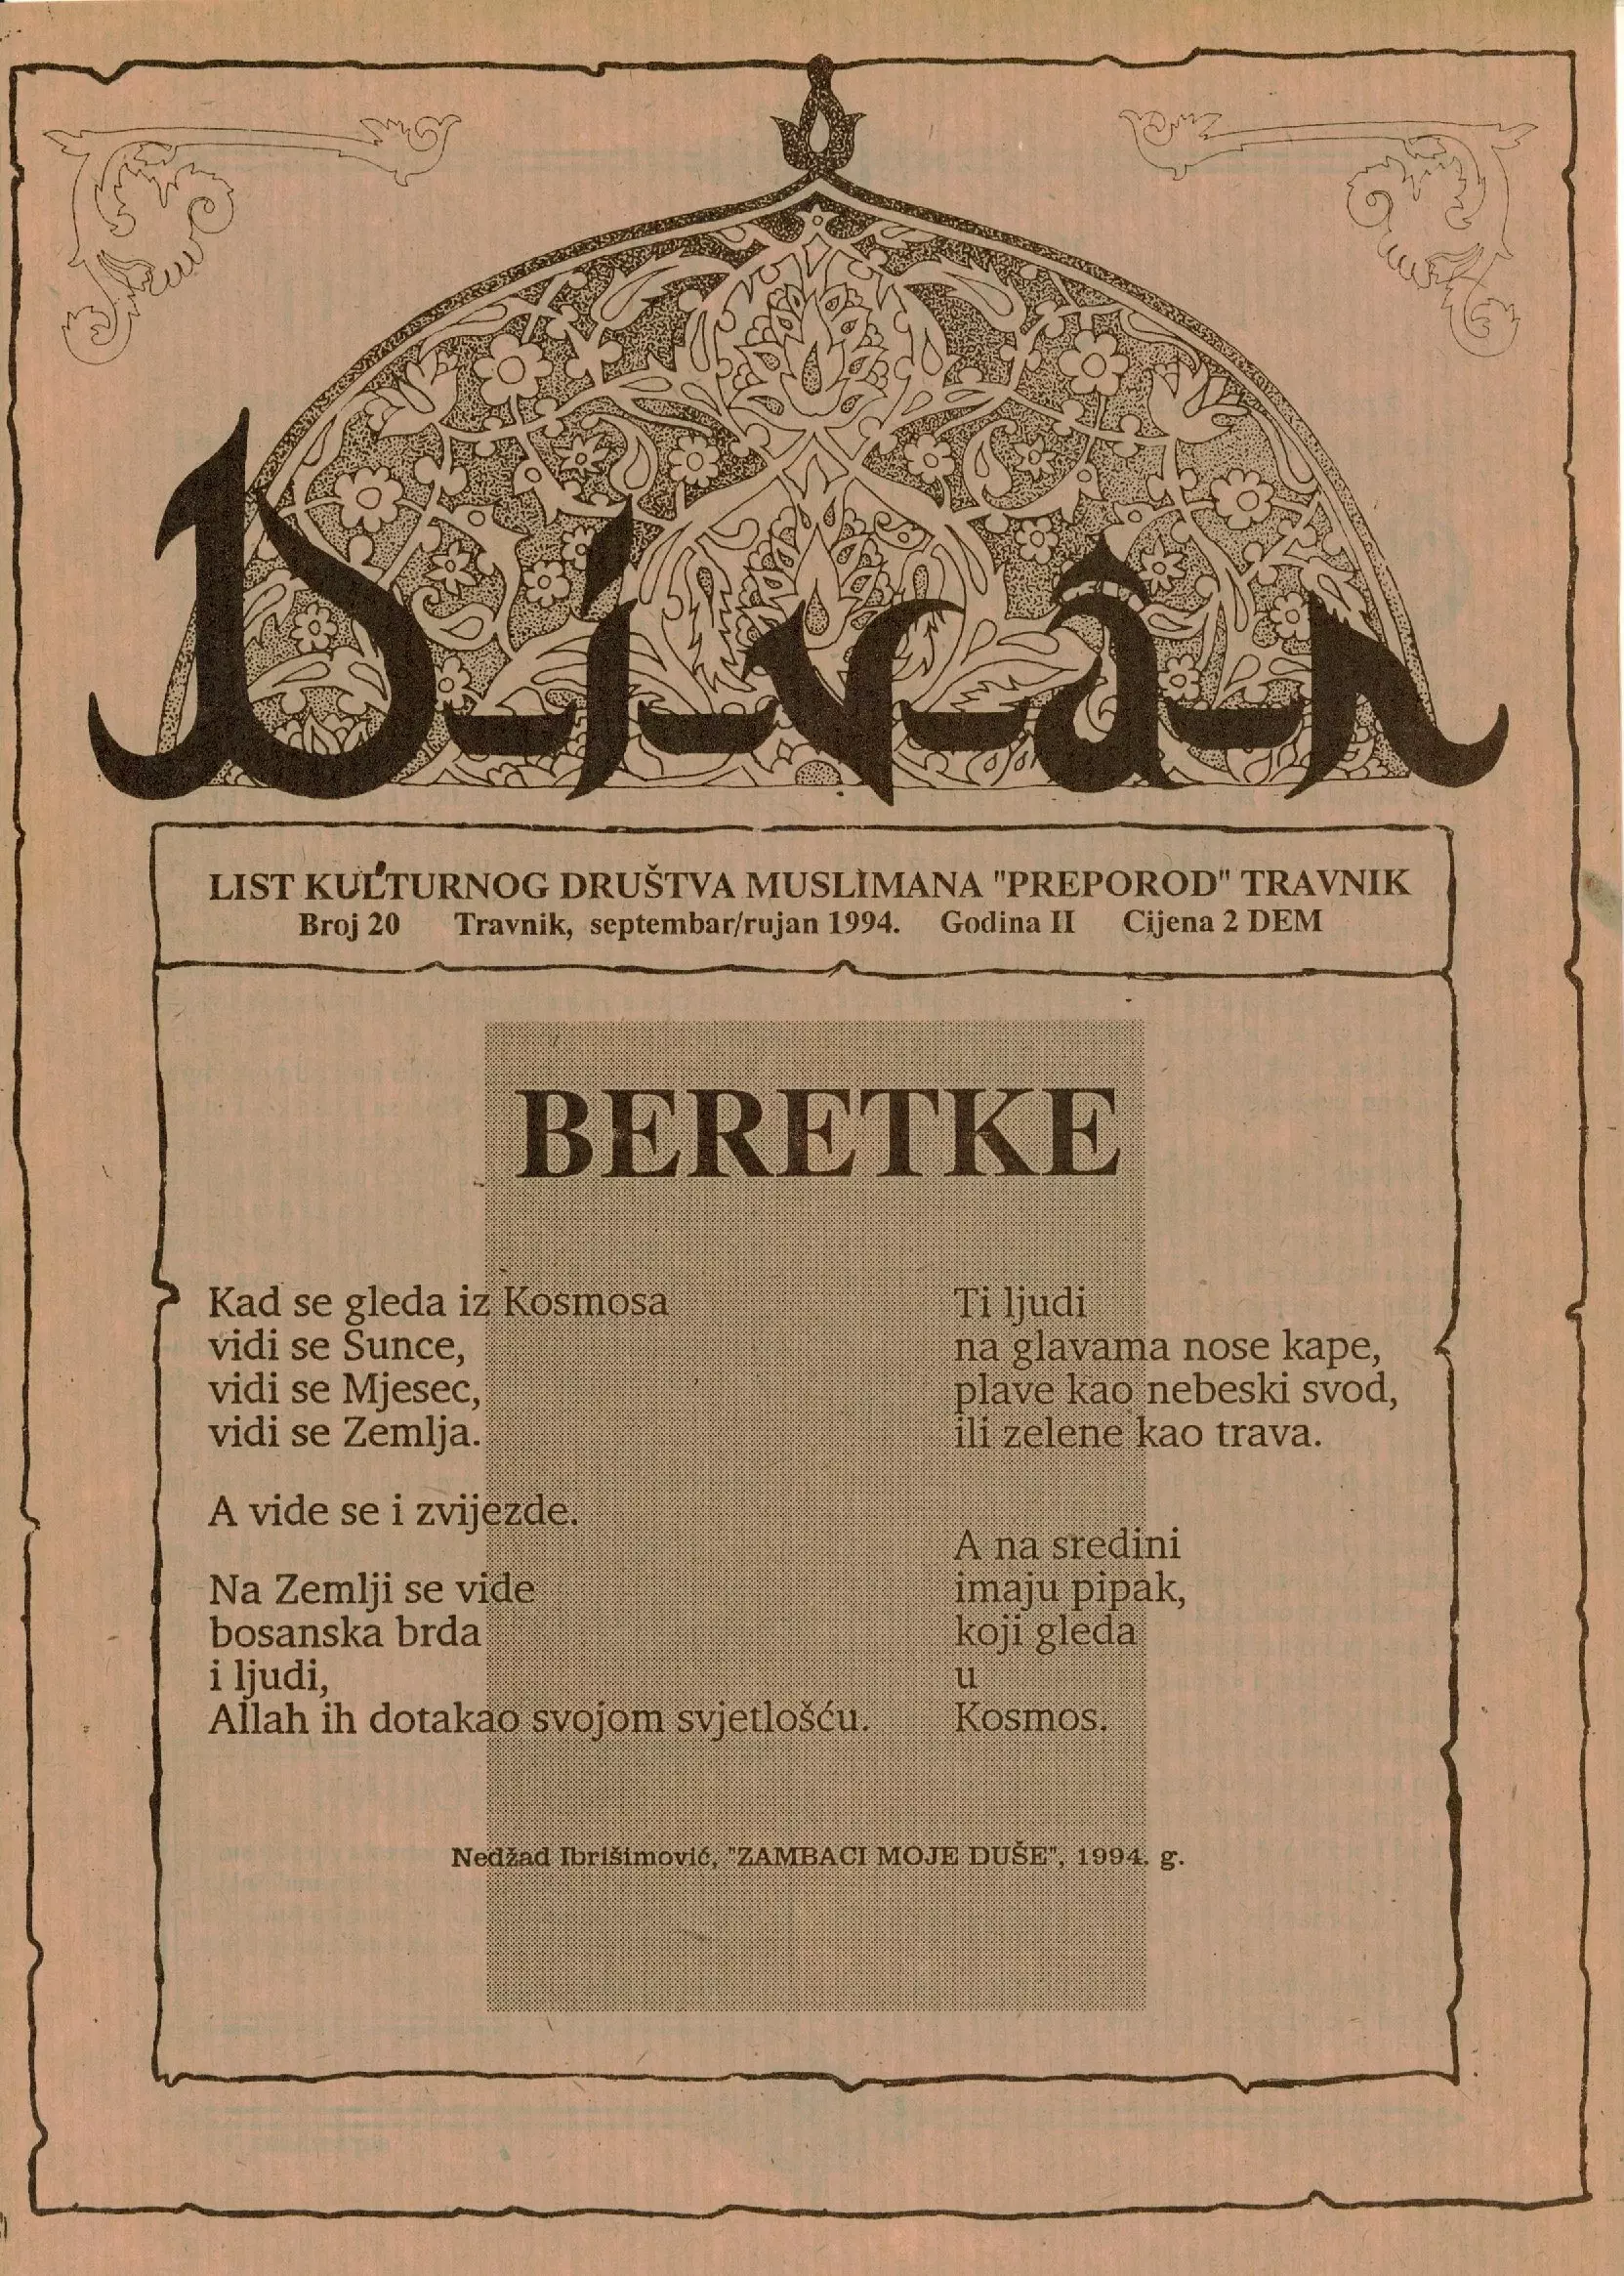 Divân
LIST KULTURNOG DRUŠTVA MUSLIMANA "PREPOROD" TRAVNIK
Broj 20 Travnik, septembar/rujan 1994. Godina II Cijena 2 DEM
BERETKE
Kad se gleda iz Kosmosa
vidi se Sunce,
vidi se Mjesec,
vidi se Zemlja.
A vide se i zvijezde.
Na Zemlji se vide
bosanska brda
i ljudi,
Allah ih dotakao svojom svjetlošću.
Ti ljudi
na glavama nose kape,
plave kao nebeski svod,
ili zelene kao trava.
A na sredini
imaju pipak,
koji gleda
u
Kosmos.
Nedžad Ibrišimović, "ZAMBACI MOJE DUŠE", 1994. g.